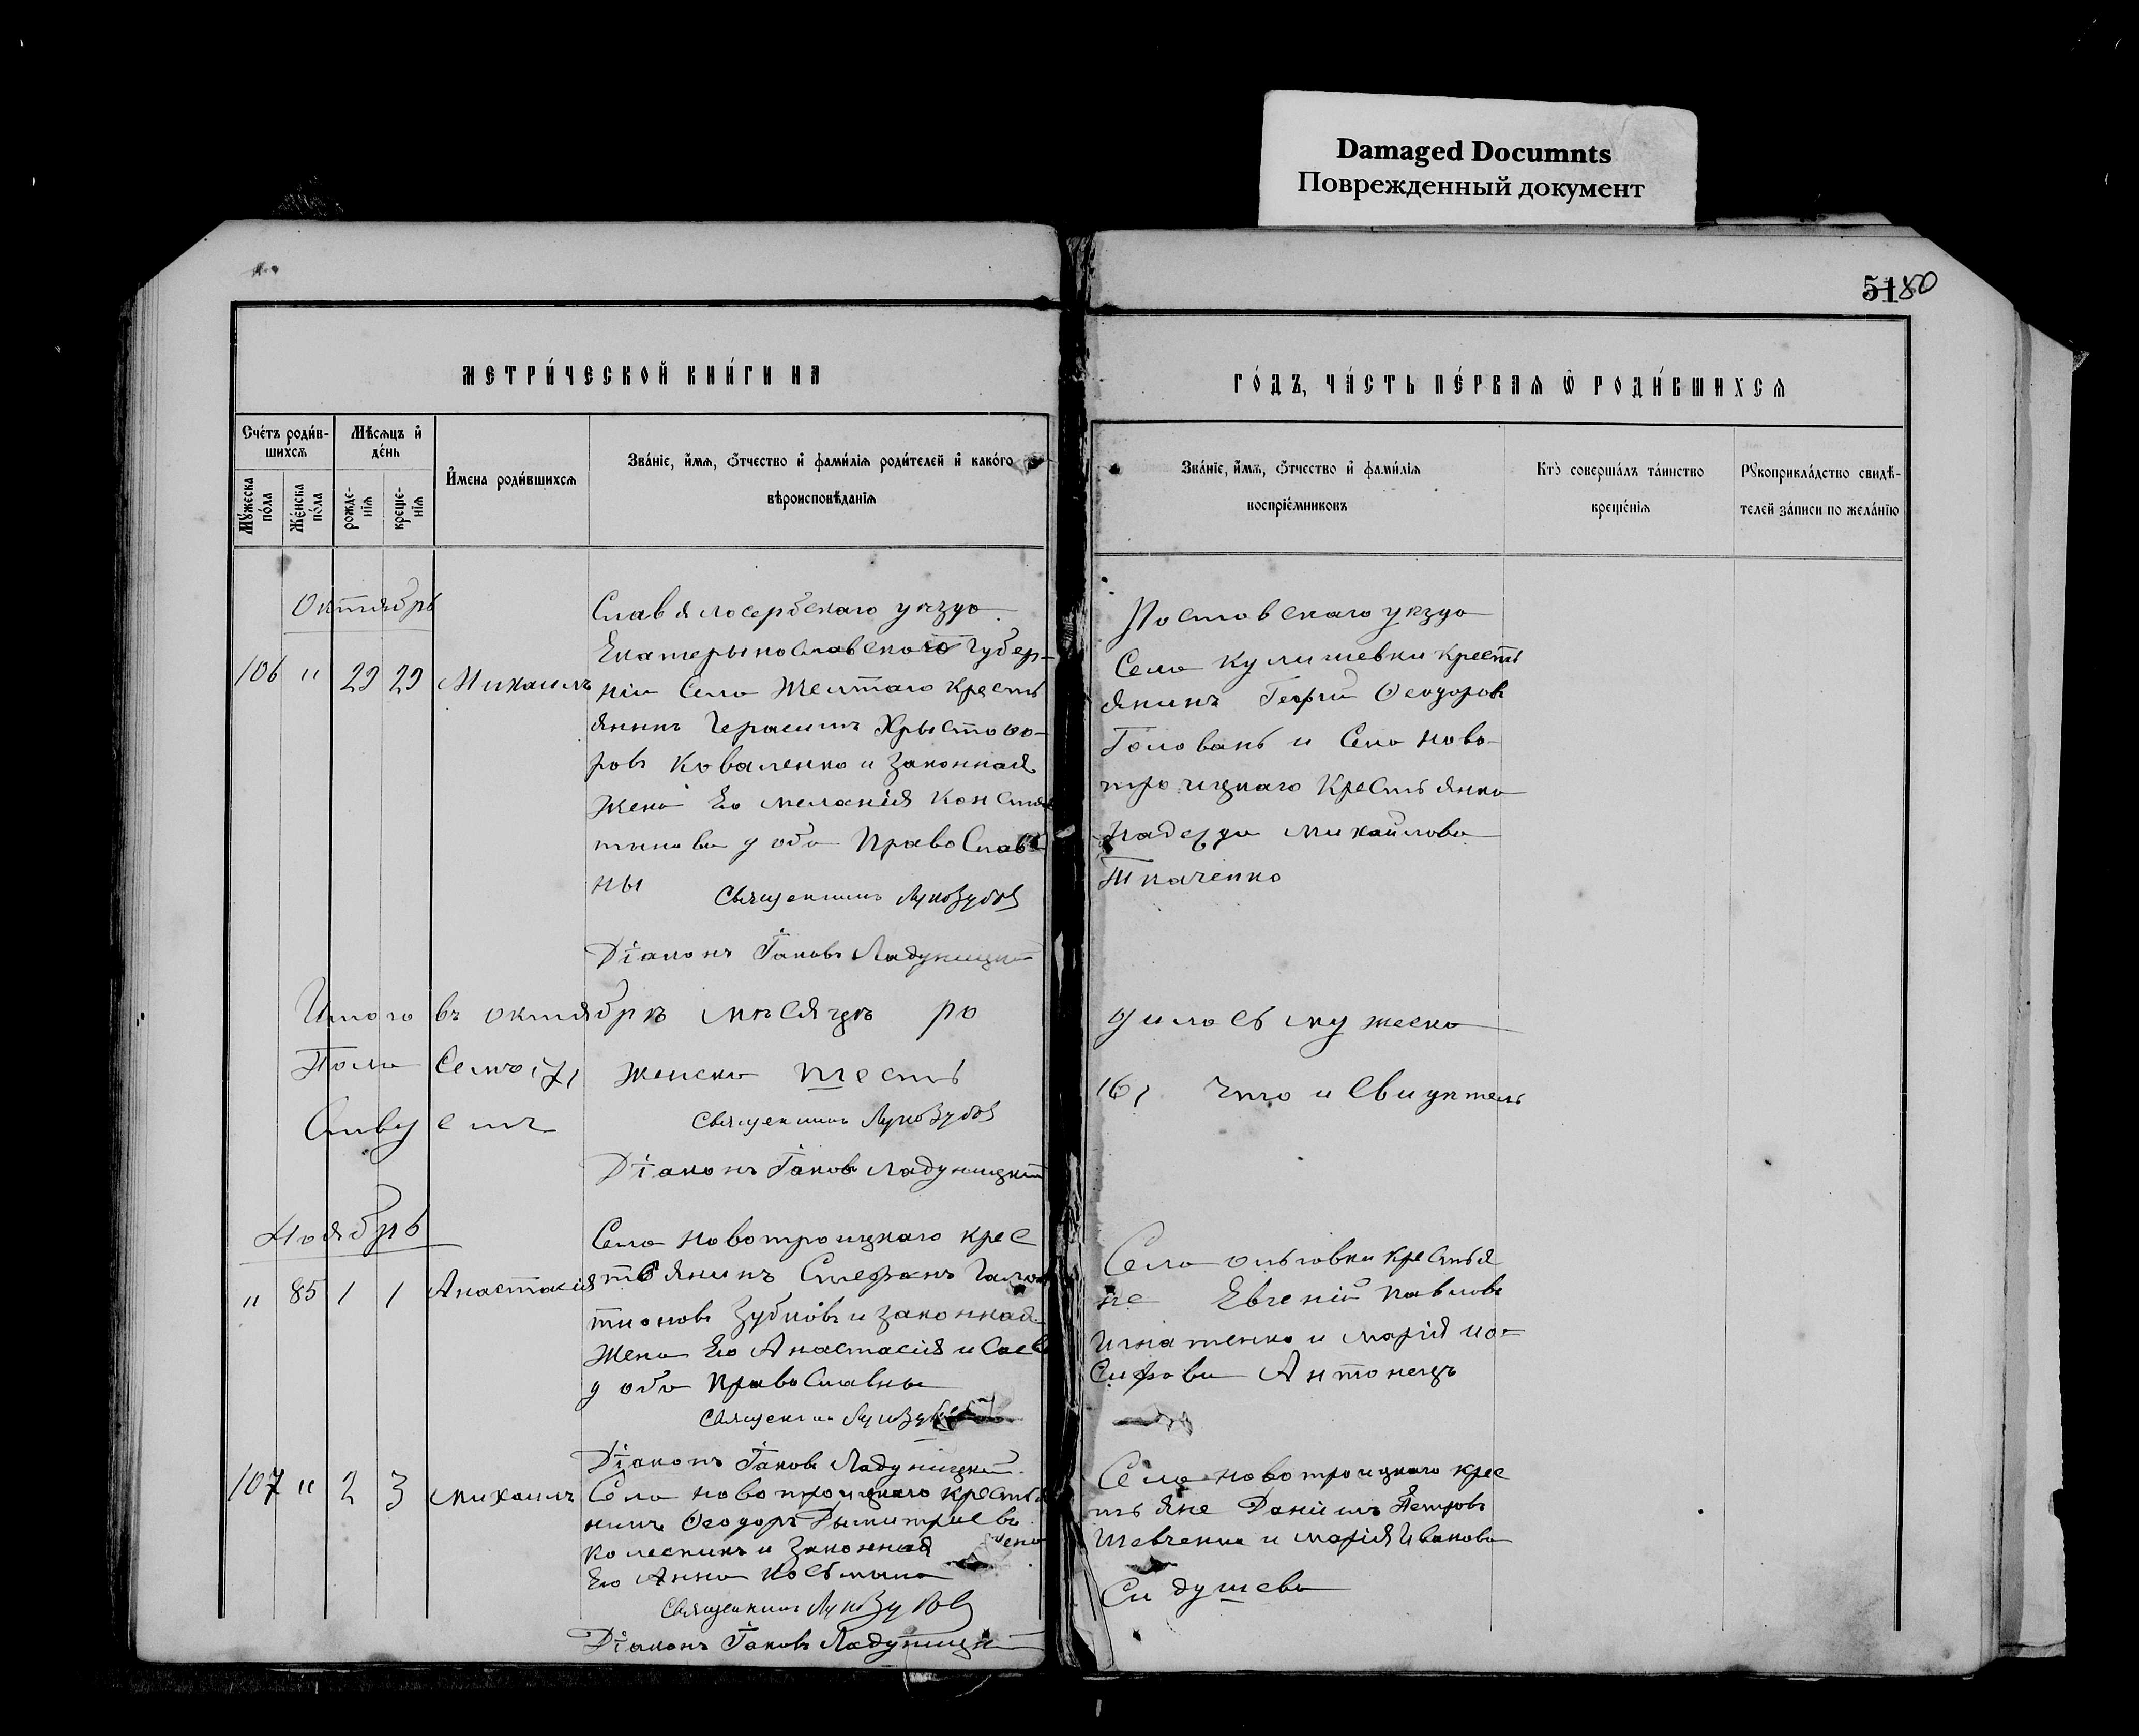 Damaged Documnts
Поврежденный документ
51 80
МЕТРИ́ЧЕСКОЙ КНИ́ГИ НА
ГО́ДЪ, ЧА́СТЬ ПЕ́РВАЯ Ѽ РОДИ́ВШИХСЯ
Сче́тъ роди́в-
шихсѧ
Мѣ́сѧцъ и҆
де́нь
Му́жеска
по́ла
Же́нска
по́ла
рожде-
нїѧ
креще-
нїѧ
И҆мена роди́вшихсѧ
Зва́нїе, и҆́мѧ, ѻ҆́тчество и҆ фами́лїѧ роди́телей и҆ како́гѡ
вѣроисповѣ́данїѧ
Зва́нїе, и҆́мѧ, ѻ҆́тчество и҆ фами́лїѧ
воспрїе́мниковъ
Кто̀ соверша́лъ та́инство
креще́нїѧ
Рꙋкоприкла́дство свидѣ́-
телей за́писи по жела́нїю
Октябрь
106 " 29 29 Михаилъ
Славяносербскаго уѣзда
Екатерынославской Губер-
ніи Села Желтаго Кресть
янинъ Герасимъ Хрыстофо-
ровъ Коваленко и законная
жена Его Меланія Конста
тинова оба Православ
ны
Священникъ Лукозубов
Діаконъ Іаковъ Ладуницкій
Ростовскаго уѣзда
Села Кулишевки Кресть
янинъ Георгій Ѳеодоровъ
Головань и Села Ново-
троицкаго Крестьянка
Надежда Михаилова
Ткаченко
Итого въ октябрѣ мѣсяцѣ ро
дилось мужеска
Пола Семь (7) женска шесть
(6) что и Свидѣтель
Ствуемъ
Священникъ Лукозубов
Діаконъ Іаковъ Ладуницкій
Ноябрь
" 85 1 1 Анастасія
Села Новотроицкаго крес
тьянинъ Стефанъ
Зубковъ и законная
Жена Его Анастасія
оба Православны
Священникъ
Діаконъ Іаковъ Ладуницкій
Села Ольговки крестья
не Евгеній Павловъ
Игнатенко и Марія Ио-
сифова Антонецъ
107 " 2 3 Михаилъ
Села Новотроицкаго крестья
нинъ Ѳеодоръ Дымитріевъ
Колесникъ и Законная жена
Его Анна Косьмина
Священникъ Лукозубов
Діаконъ Іаковъ Ладуницкій
Села Новотроицкаго крес
тьяне Даніилъ Петровъ
Шевченко и Марія Иванова
Сидушева